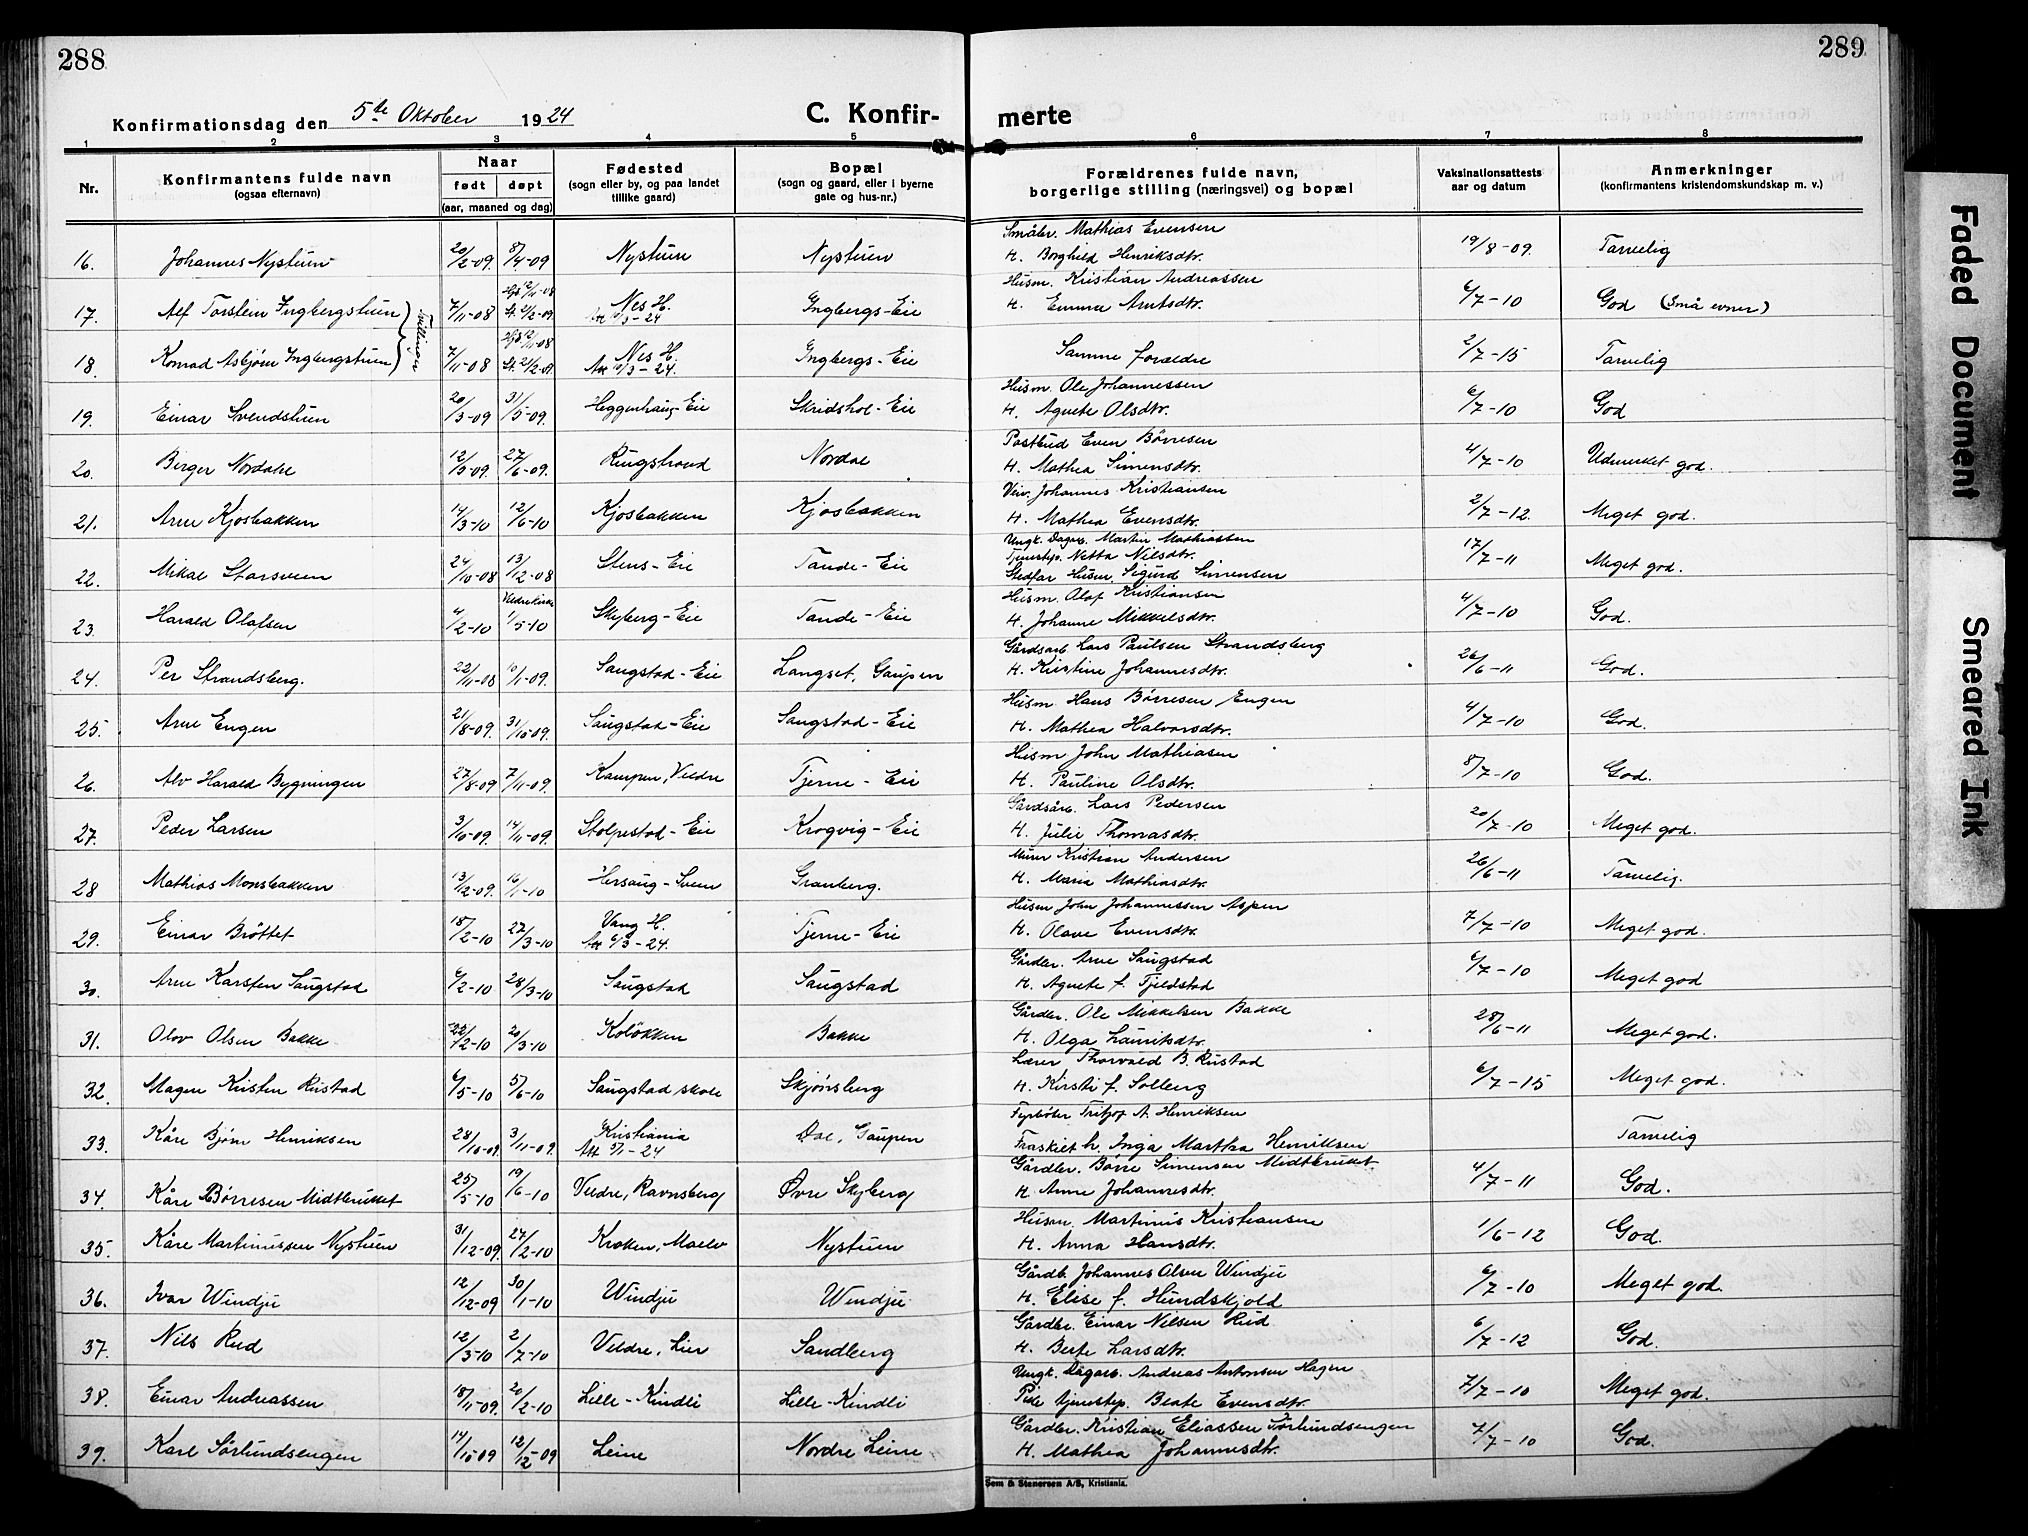 288
289
Konfirmationsdag den 5te Oktober 1924
C. Konfir-
merte
1 2 3 4 5 6 7 8
Nr.
Konfirmantens fulde navn
(ogsaa efternavn)
Naar
født døpt
(aar, maaned og dag)
Fødested
(sogn eller by, og paa landet
tillike gaard)
Bopæl
(sogn og gaard, eller i byerne
gate og hus-nr.)
Forældrenes fulde navn,
borgerlige stilling (næringsvei) og bopæl
Vaksinationsattests
aar og datum
Anmerkninger
(konfirmantens kristendomskundskap m. v.)
Småbr. Mathias Evensen
16. Johannes Nystuen 20/2-09. 8/4-09 Nystuen Nystuen H. Borghild Henriksdtr. 19/8-09. Tarvelig
Husm. Kristian Andreassen
17. Alf Torstein Ingbergstuen Tvillinger 7/11-08 Hjd 12/11-08 St. 21/2-09 Nes H. Att 10/3-24 Ingbergs-Eie H. Emma Arntsdtr. 6/7-10 God (Små evner)
18. Konrad Asbjørn Ingbergstuen 7/11-08 Hjd 12/11-08 St. 21/2-09 Nes H. Att 10/3-24. Ingbergs-Eie Samme forældre 2/7-15 Tarvelig
Husm. Ole Johannessen
19. Einar Svendstuen 20/3-09 31/5-09. Heggenhaug-Eie Skridshol-Eie H. Agnete Olsdtr. 6/7-10 God
Postbud Even Børresen
20. Birger Nordahl 12/5-09. 27/6-09. Ringstrand Nordal H. Mathea Simensdtr. 4/7-10 Udmerket god.
Veiv. Johannes Kristiansen
21. Arne Kjosbakken 14/3-10 12/6-10 Kjosbakken Kjosbakken H. Mathea Evensdtr. 2/7-12. Meget god.
Ungk. Dagarb. Martin Mathiassen
Tjenestep. Netta Nilsdtr.
22. Mikal Storsveen 24/10-08 13/12-08 Stens-Eie Tande-Eie Stedfar Husm. Sigurd Simensen 17/7-11 Meget god.
Veldre kirke Husm. Olaf Kristiansen
23. Harald Olafsen 4/2-10 1/5-10 Skyberg-Eie Tande-Eie H. Johanne Mikkelsdtr. 4/7-10 God.
Gårdsarb. Lars Paulsen Strandsberg
24. Per Strandsberg. 22/11-08 10/1-09. Saugstad-Eie Langset, Gaupen H. Kristine Johannesdtr. 26/6-11 God.
Husm Hans Børresen Engen
25. Arne Engen 21/8-09. 31/10-09. Saugstad-Eie Saugstad-Eie H. Mathea Halvorsdtr. 4/7-10 God.
Husm John Mathiasen
26. Alv Harald Bygningen 27/8-09 7/11-09. Kampen, Veldre Tjerne-Eie H. Pauline Olsdtr. 8/7-10 God.
Gårdsarb. Lars Pedersen
27. Peder Larsen 3/10-09. 14/11-09. Stolpestad-Eie Krogvig-Eie H. Julie Thomasdtr. 20/7-10 Meget god.
Murer Kristian Andersen
28 Mathias Monsbakken 13/12-09. 16/1-10 Hersaug-Sveen Granberg. H. Maria Mathiasdtr. 26/6-11 Tarvelig.
Husm John Johannessen Aspen
29. Einar Brøttet 18/2-10 27/3-10 Vang H. Att 6/3-24. Tjerne-Eie H. Olave Evensdtr. 7/7-10 Meget god.
Gårdbr. Arne Saugstad
30. Arne Karsten Saugstad 6/2-10 28/3-10 Saugstad Saugstad H. Agnete f. Tjeldstad 6/7-10 Meget god
Gårdbr. Ole Mikkelsen Bakke
31. Olav Olsen Bakke 22/2-10 20/3-10 Koløkken Bakke H. Olga Lauritsdtr. 28/6-11 Meget god.
Lærer Thorvald B. Rustad
32. Magne Kristen Rustad 6/5-10 5/6-10 Saugstad skole Skjønsberg H. Kirsti f. Solberg 6/7-15 Meget god.
Fyrbøter Tritjof A. Henriksen
33. Kåre Bjørn Henriksen 28/10-09. 3/11-09. Kristiania Att 5/1-24 Dal, Gaupen Fraskilt h. Inga Martha Henriksen Tarvelig
Gårdbr. Børre Simensen Midtbruket.
34. Kåre Børresen Midtbruket 25/5-10 19/6-10 Veldre, Ravnsberg Øvre Skyberg H. Anne Johannesdtr. 4/7-11 God.
Husm. Martinus Kristiansen
35. Kåre Martinussen Nystuen 31/12-09. 27/2-10 Kroken, Maelv Nystuen H. Anna Hansdtr. 1/6-12 God.
Gårdb. Johannes Olsen Windju
36. Ivar Windju 12/12-09 30/1-10 Windju Windju H. Elise f. Hundskjold 6/7-10 Meget god.
Gårdbr. Einar Nilsen Rud
37. Nils Rud 12/3-10 2/7-10 Veldre, Lier Sandberg H. Berte Larsdtr. 6/7-12 God.
Ungk. Dagarb. Andreas Antonsen Hagen
38. Einar Andreassen 18/11-09. 20/2-10 Lille-Kindli Lille-Kindli Pike tjenestep. Beate Evensdtr. 7/7-10 Meget god.
Gårdbr. Kristian Eliassen Sørlundsengen
39. Karl Sørlundsengen 14/10-09 12/12-09 Leine Nordre Leine H. Mathea Johannesdtr. 7/7-10 God.
Sem & Stenersen A/S, Kristiania.
Faded Document
Smeared Ink